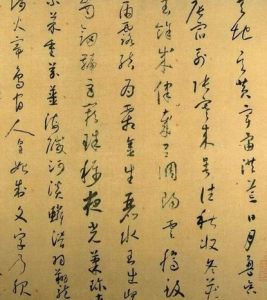 天地玄黃宇宙洪荒日月盈昃
辰宿列張寒來暑往秋收冬藏
閏餘成歲律呂調陽雲騰致
雨露結為霜金生麗水玉出崑
岡劍號巨闕珠稱夜光菓珍李
柰菜重芥薑海鹹河淡鱗潛羽翔龍
師火帝鳥官人皇始制文字乃服